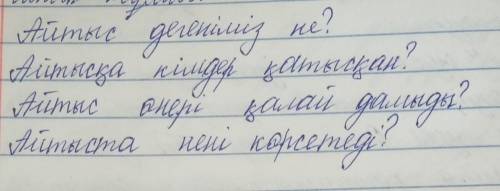 Айтыс дегеніміз не?
Айтысқа кімдер қатысқан?
Айтыс өнері қалай дамыды?
Айтыста нені көрсетеді?